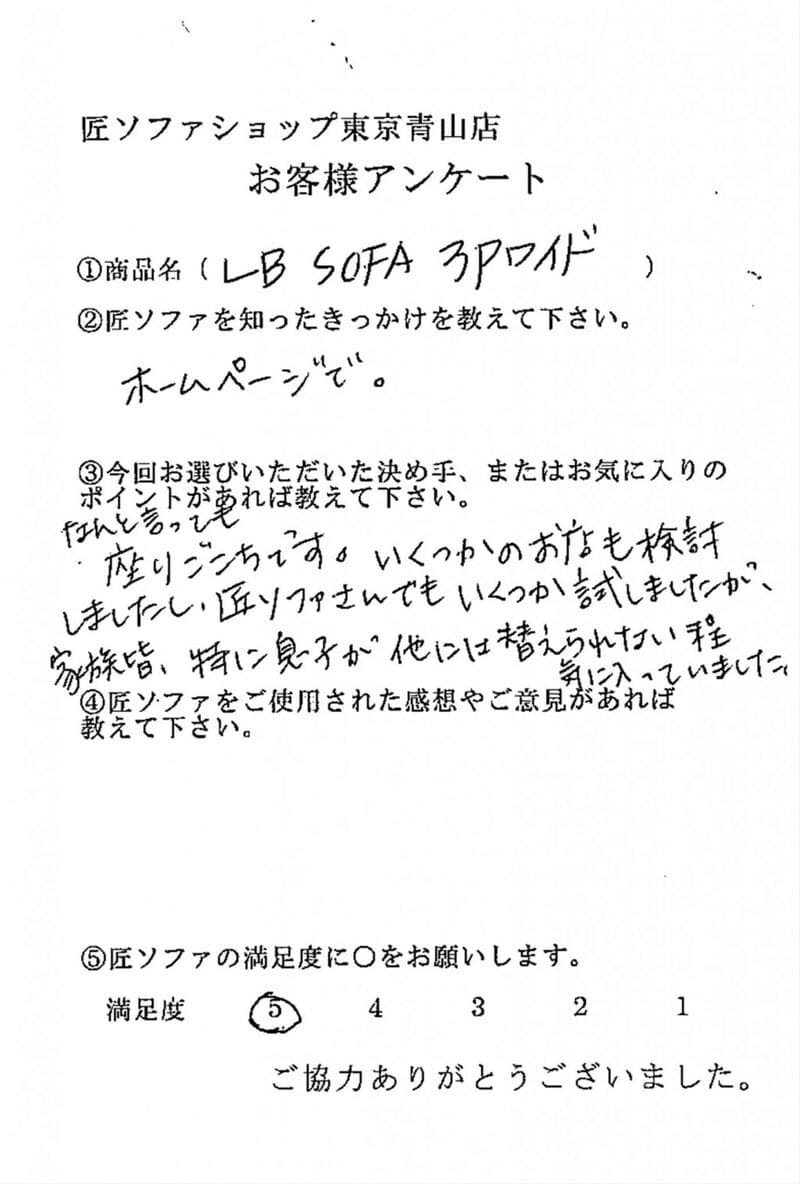 匠ソファショップ東京青山店
お客様アンケート
①商品名（ LB SOFA 3Pワイド ）
②匠ソファを知ったきっかけを教えて下さい。
ホームページで。
③今回お選びいただいた決め手、またはお気に入りの
ポイントがあれば教えて下さい。
なんと言っても
座りごこちです。いくつかのお店も検討
しましたし、匠ソファさんでもいくつか試しましたが、
家族皆、特に息子が他には替えられない程
気に入っていました。
④匠ソファをご使用された感想やご意見があれば
教えて下さい。
⑤匠ソファの満足度に〇をお願いします。
満足度 5 4 3 2 1
ご協力ありがとうございました。